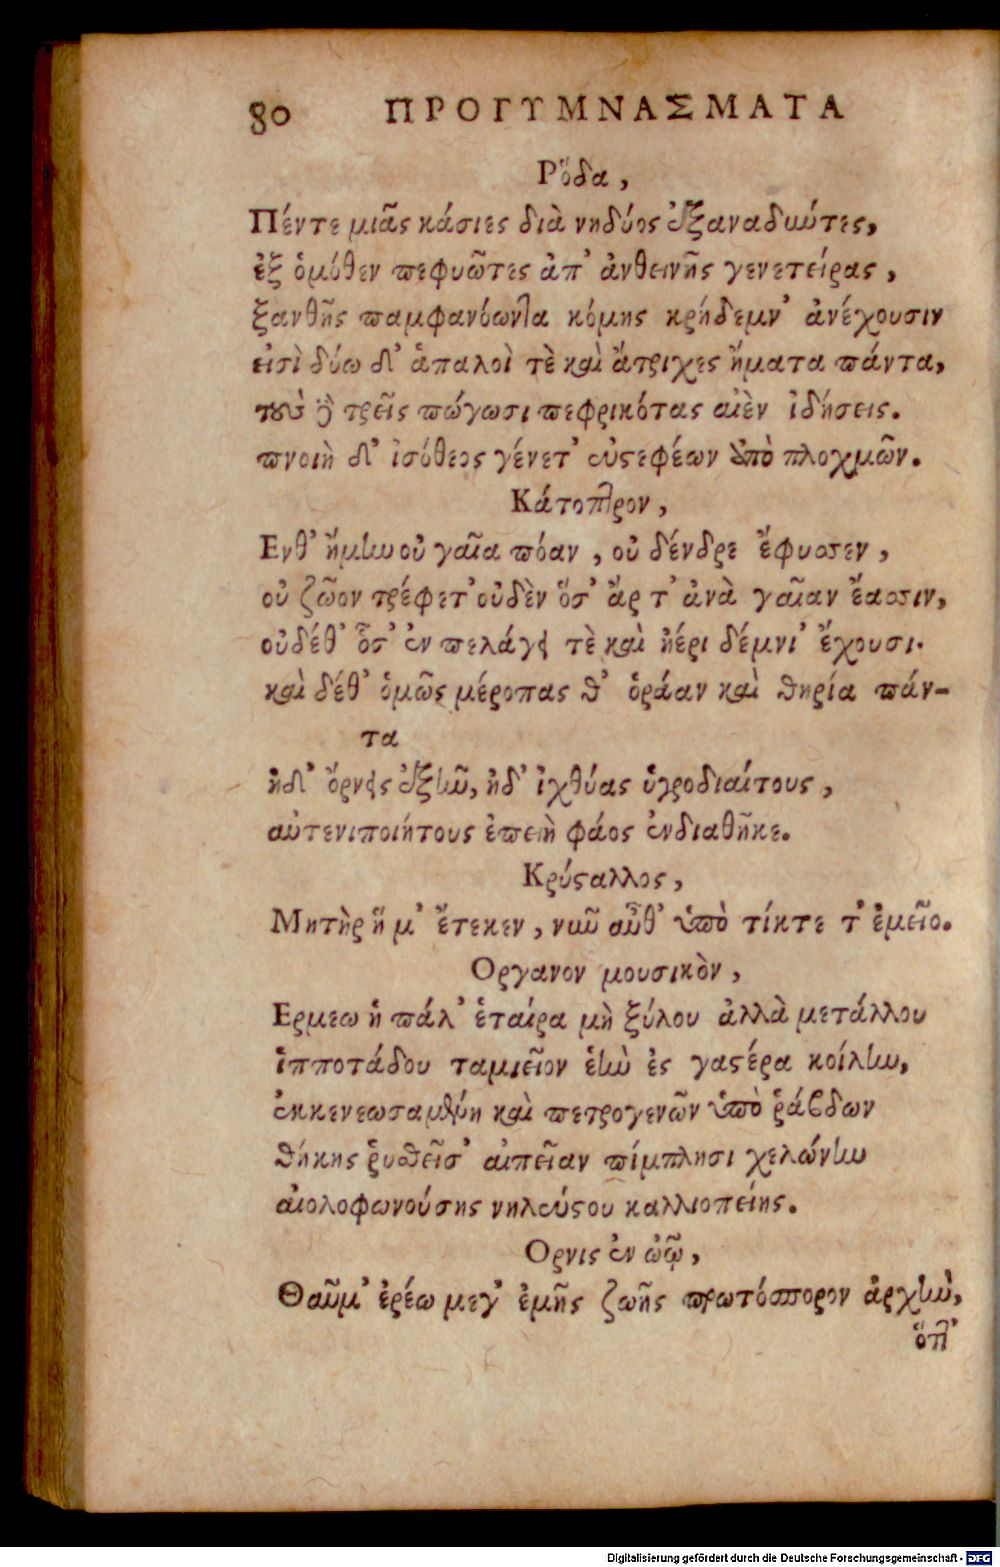 80 ΠΡΟΓΥΜΝΑΣΜΑΤΑ
Ρὅδα,
Πέντε μιᾶς κάσιες διὰ νηδύος ἐξαναδιώτες,
ἐξ ὁμόθεν πεφυῶτες ἀπ' ἀνθεινῆς γενετείρας,
ξανθῆς παμφανόωντα κόμης κρήδεμν' ἀνέχουσιν
εἰσὶ δύω δ' ἁπαλοὶ τὲ καὶ ἄτριχες ἤματα πάντα,
τοὺς δὲ τρεῖς πώγωσι πεφρικότας αἰὲν ἰδήσεις.
πνοιὴ δ' ἰσόθεος γένετ' εὐστεφέων ἀπὸ πλοχμῶν.
Κάτοπτρον,
Ενθ' ἤμην οὐ γαῖα πόαν, οὐ δένδρε ἔφυσεν,
οὐ ζῶον τρέφετ' οὐδὲν ὅσ' ἄρ τ' ἀνὰ γαῖαν ἔασιν,
οὐδέθ' ὅσ' ἐν πελάγει τὲ καὶ ἠέρι δέμνι' ἔχουσι.
καὶ δέθ' ὁμῶς μέροπας θ' ὁράαν καὶ θηρία πάν-
τα
ἠδ' ὄρνεις ἐξῆν, ἠδ' ἰχθύας ὑγροδιαίτους,
αὐτενιποιήτους ἐπειὴ φάος ἐνδιαθῆκε.
Κρύσταλλος,
Μητὴρ ἥ μ' ἔτεκεν, νῦν αὖθ' ὑπὸ τίκτε τ' ἐμεῖο.
Οργανον μουσικὸν,
Ερμεω ἡ πάλ' ἑταίρα μὴ ξύλου ἀλλὰ μετάλλου
ἱπποτάδου ταμιεῖον ἑὴν ἐς γαστέρα κοίλην,
ἐκκενεωσαμένη καὶ πετρογενῶν ὑπὸ ῥάβδων
θήκης ῥυθεῖσ' αἰπεῖαν πίμπλησι χελώνην
αἰολοφωνούσης νηλεύστου καλλιοπείης.
Ορνις ἐν ὠῷ,
Θαῦμ' ἐρέω μεγ' ἐμῆς ζωῆς πρωτόσπορον ἀρχὴν,
ὅπτ'
Digitalisierung gefördert durch die Deutsche Forschungsgemeinschaft - DFG